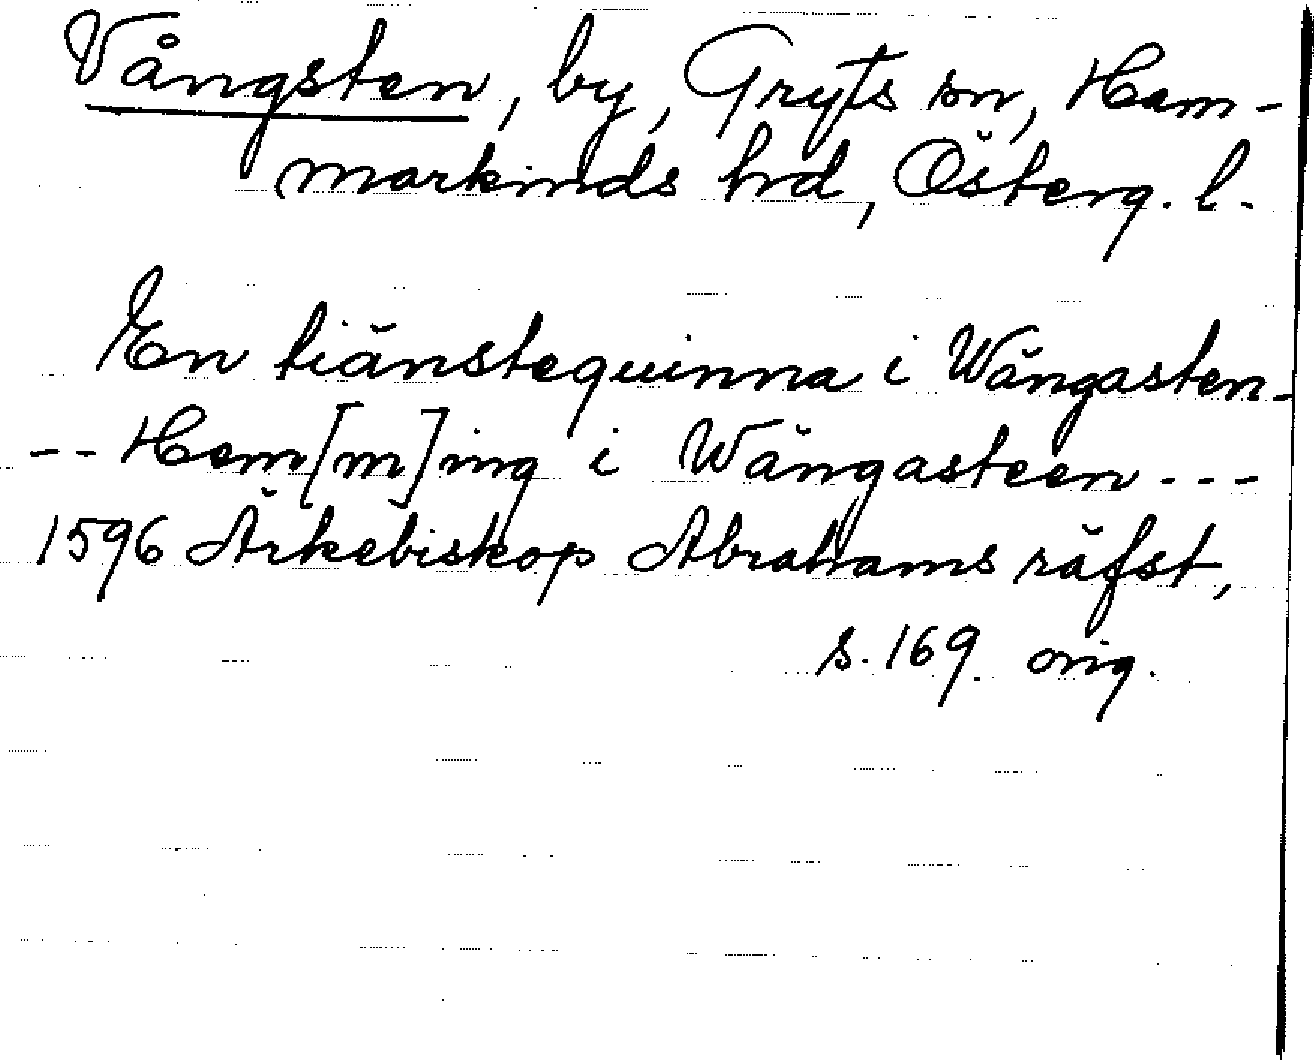 Vångsten, by, Gryts sn, Ham-
markinds hd, Österg. l.
En tiänstequinna i Wångasten-
-- Hem[m]ing i Wångasteen ---
1596 Ärkebiskop Abrahams räfst,
s. 169. orig.